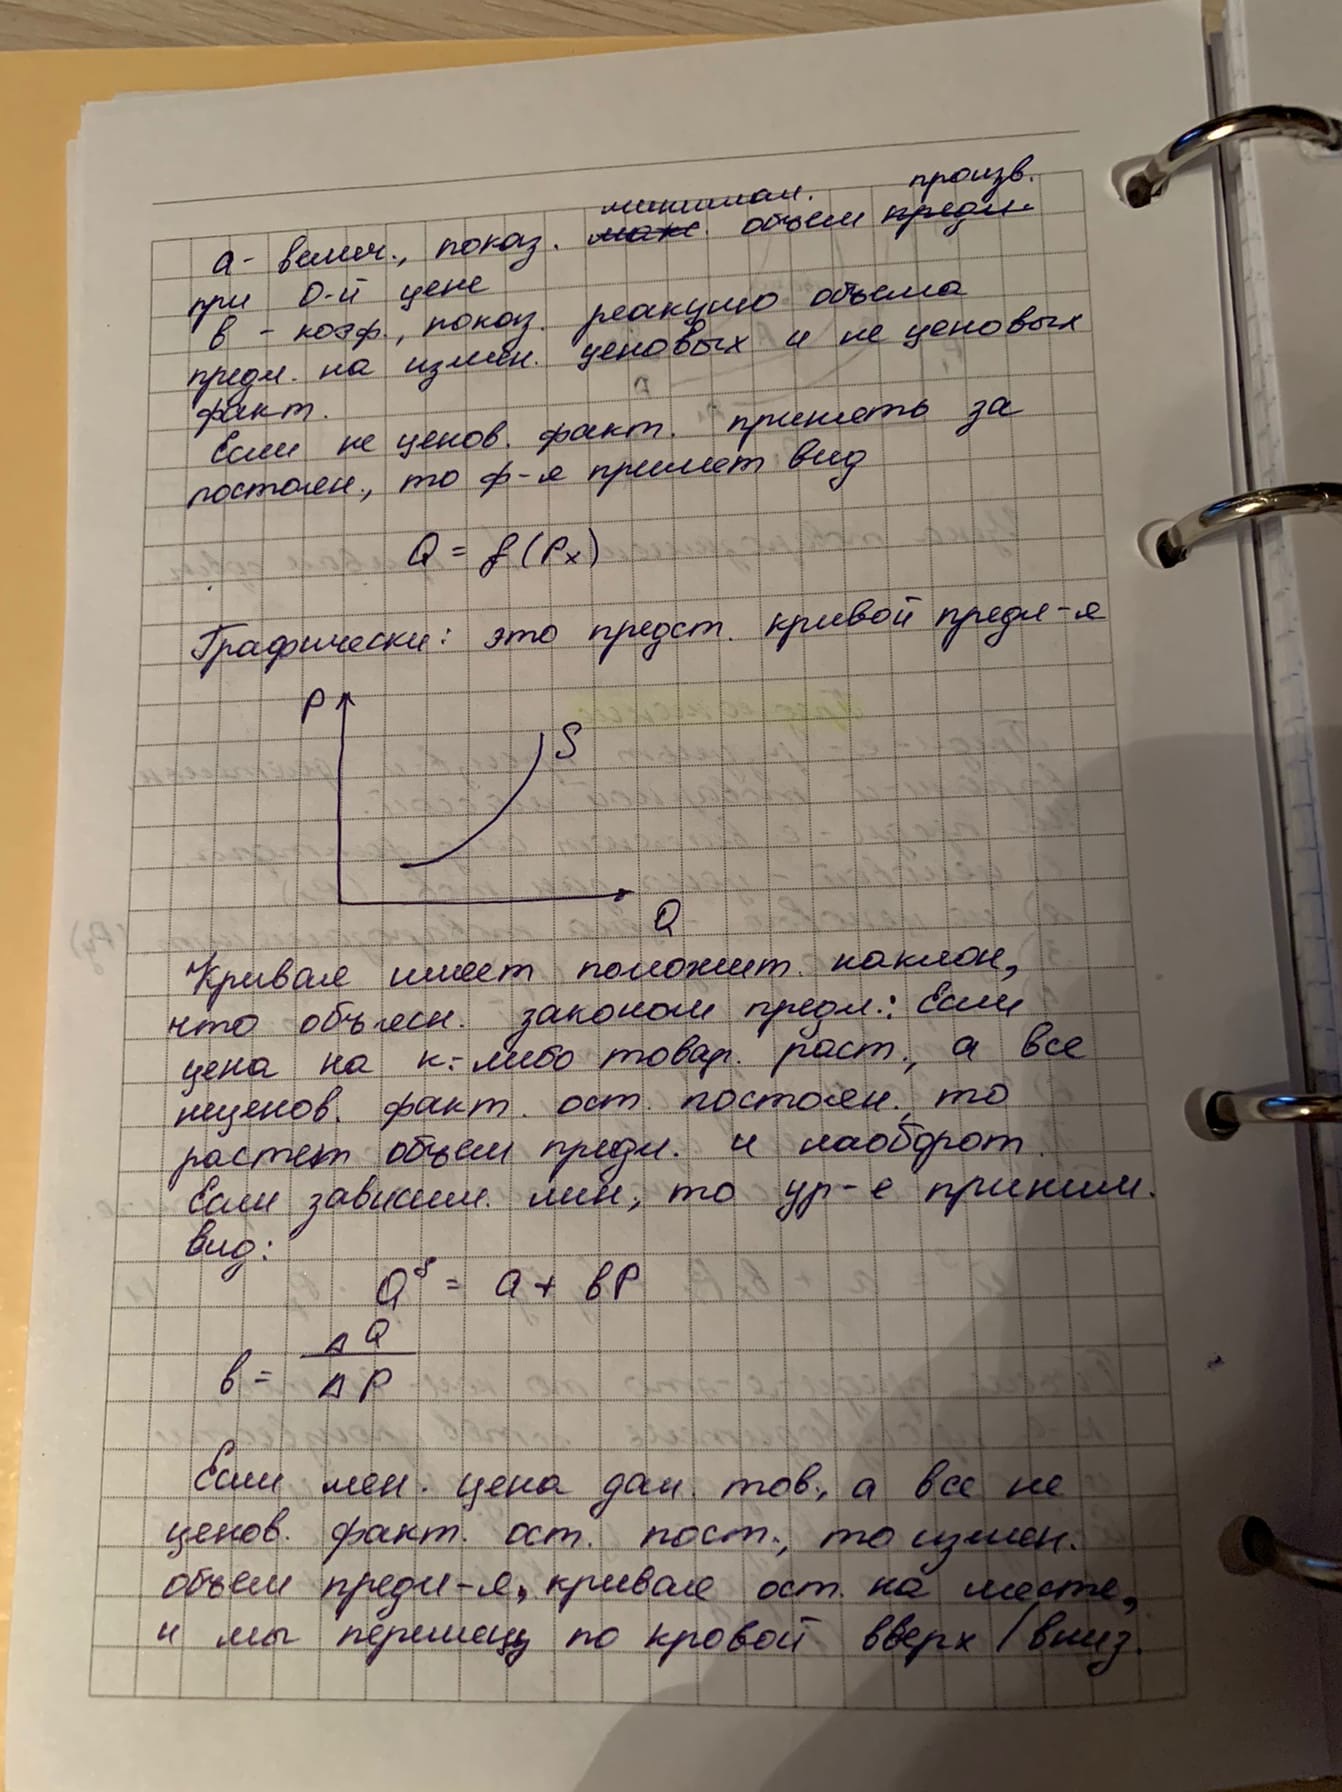 миншмал. произв.
а - велич., показ. макс. объем предл.
при 0-й цене
в - коэф., показ. реакцию объема
предл. на измен. ценовых и не ценовых
факт.
Если не ценов. факт. принять за
постоян., то ф-я примет вид
Q = f(Px)
Графически: это предст. кривой предл-я
P
S
Q
Кривая имеет положит. наклон,
что объясн. законом предл.: Если
цена на к.-либо товар. раст., а все
неценов. факт. ост. постоян., то
растет объем предл. и наоборот.
Если зависим. лин., то ур-е приним.
вид:
Qˢ = a + вP
в = ΔQ / ΔP
Если мен. цена дан. тов., а все не
ценов. факт. ост. пост., то измен.
объем предл-я, кривая ост. на месте,
и мы перемещ по кровой вверх / вниз.